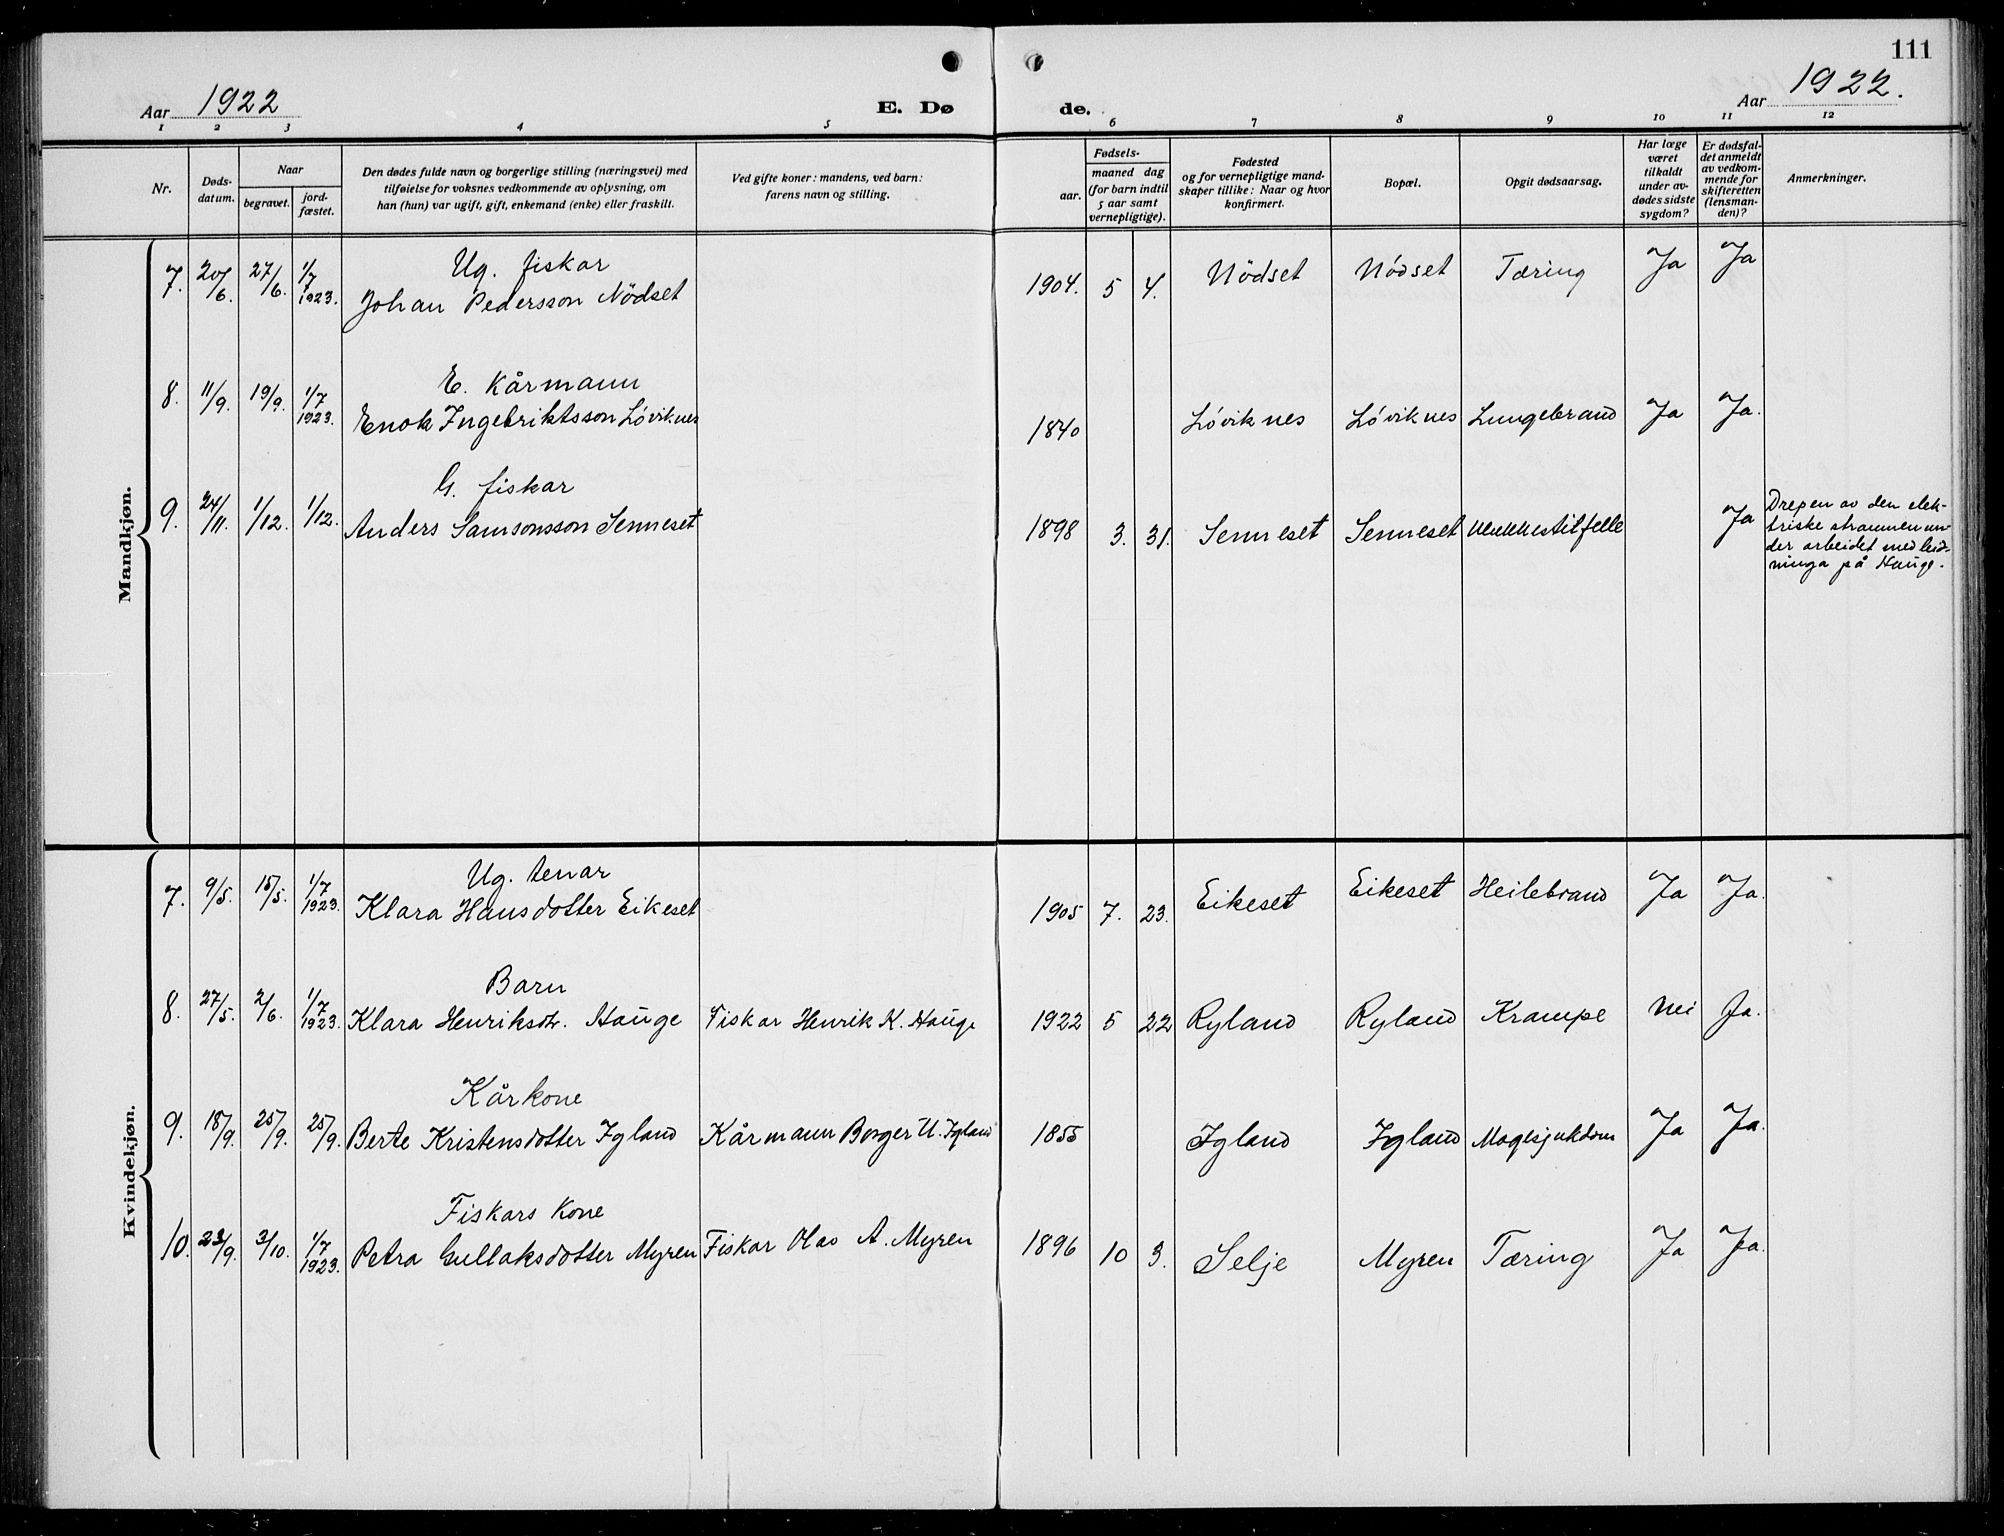 111
Aar 1922
E. Dø
de.
Aar 1922.
1 2 3 4 5 6 7 8 9 10 11 12
Nr.
Døds-
datum.
Naar
begravet.
jord-
fæstet.
Den dødes fulde navn og borgerlige stilling (næringsvei) med
tilføielse for voksnes vedkommende av oplysning, om
han (hun) var ugift, gift, enkemand (enke) eller fraskilt.
Ved gifte koner: mandens, ved barn:
farens navn og stilling.
Fødsels-
aar.
maaned dag
(for barn indtil
5 aar samt
vernepligtige).
Fødested
og for vernepligtige mand-
skaper tillike: Naar og hvor
konfirmert.
Bopæl.
Opgit dødsaarsag.
Har læge
været
tilkaldt
under av-
dødes sidste
sygdom?
Er dødsfal-
det anmeldt
av vedkom-
mende for
skifteretten
(lensman-
den)?
Anmerkninger.
Mandkjøn.
Ug. fiskar
7. 20/6. 27/6. 1/7 1923. Johan Pedersson Nödset 1904. 5 4. Nödset Nödset Tæring Ja Ja
E. Kårmann
8. 11/9. 19/9. 1/7 1923. Enok Ingebriktsson Löviknes 1840 Lövik nes Lövik nes Lungebrand Ja Ja.
G. fiskar
9. 24/11. 1/12. 1/12. Anders Samsonsson Senneset 1898 3. 31. Senneset Senneset Ulukkestilfelle Ja
Drepen av den elek-
triske straumen un-
der arbeidet med leid-
ninga på Hauge.
Kvindekjøn.
Ug. tenar
7. 9/5. 15/5. 1/7 1923. Klara Hansdotter Eikeset 1905 7. 23. Eikeset Eikeset Heilebrand Ja Ja.
Barn
8. 27/5. 2/6. 1/7 1923. Klara Henriksdtr. Hauge Fiskar Henrik K. Hauge 1922 5 22 Ryland Ryland Krampe Nei Ja.
Kårkone
9. 18/9. 25/9. 25/9. Berte Kristensdotter Igland Kårmann Borger U. Igland 1855 Igland Igland Magesjukdom Ja Ja.
Fiskars Kone
10. 23/9. 3/10. 1/7 1923. Petra Gullaksdotter Myren Fiskar Olav A. Myren 1896 10 3. Selje Myren Tæring Ja Ja.